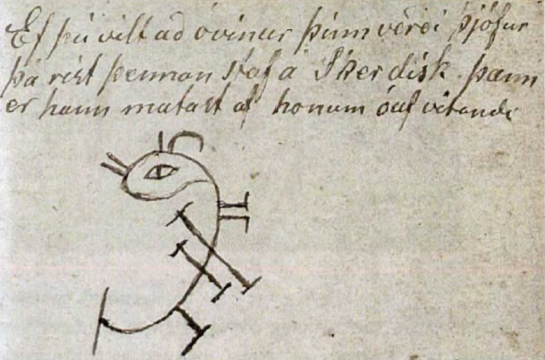 Ef þú vilt að óvinur þinn verði þjófur
þá ríst þennan staf á skerdisk þann
er hann matast af honum óaf vitandi